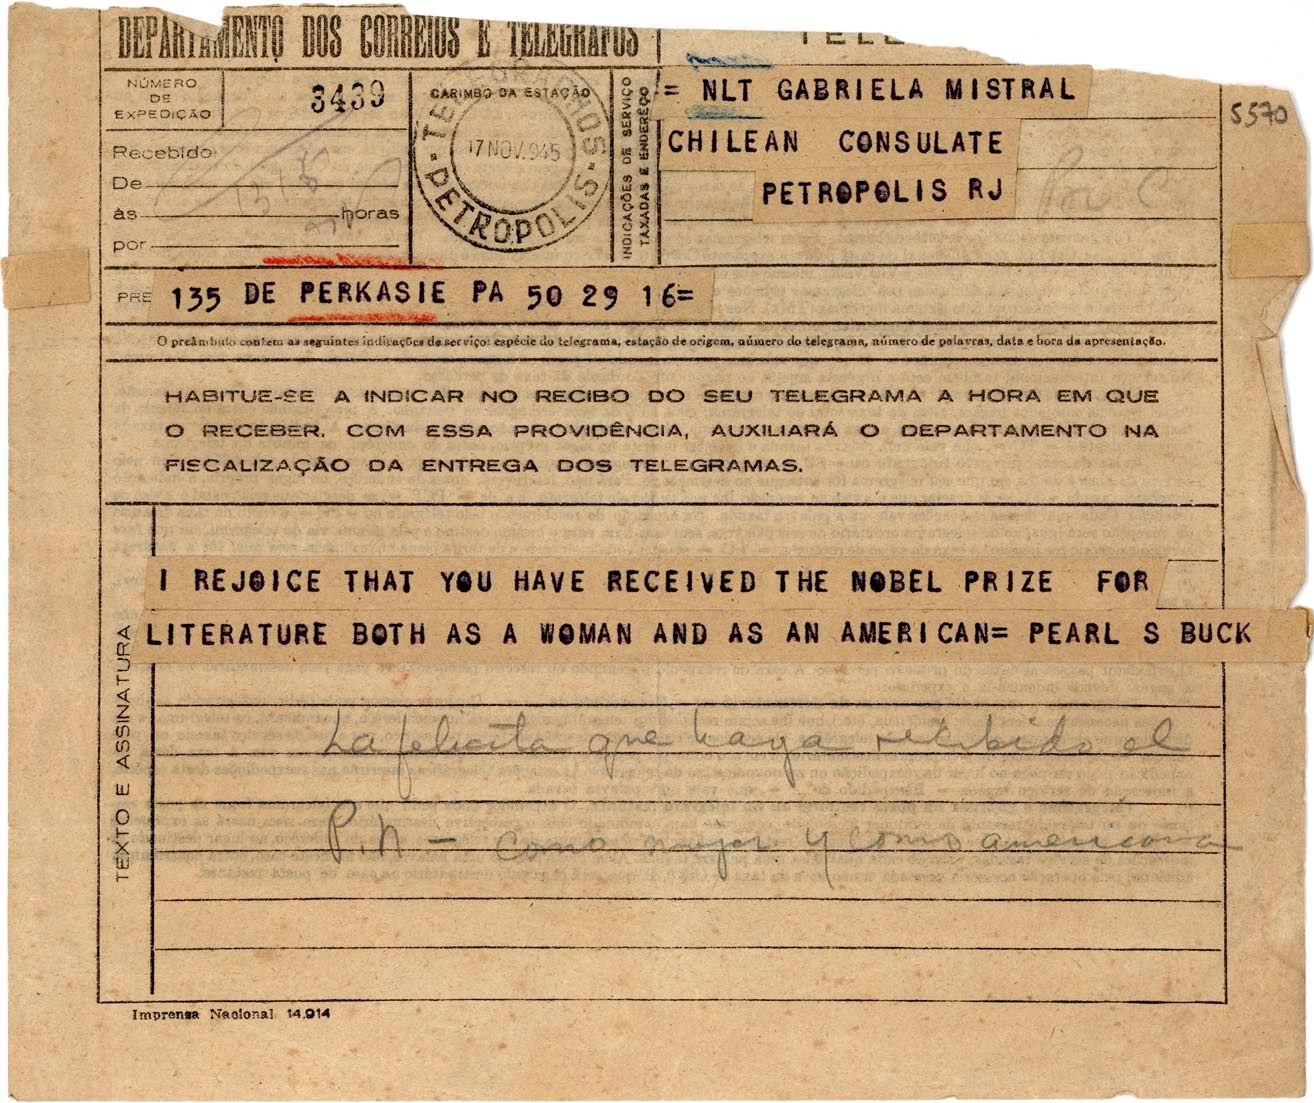 DEPARTAMENTO DOS CORREIOS E TELEGRAFOS
NÚMERO
DE
EXPEDIÇÃO
3439
CARIMBO DA ESTAÇÃO
TELEGRAPHOS
17 NOV. 945
PETROPOLIS
INDICAÇÕES DE SERVIÇO
TAXADAS E ENDEREÇO
= NLT GABRIELA MISTRAL
CHILEAN CONSULATE
PETROPOLIS RJ
5570
Recebido
De
às horas
por
PRE 135 DE PERKASIE PA 50 29 16=
O preâmbulo contem as seguintes indicações de serviço: espécie do telegrama, estação de origem, número do telegrama, número de palavras, data e hora da apresentação.
HABITUE-SE A INDICAR NO RECIBO DO SEU TELEGRAMA A HORA EM QUE
O RECEBER. COM ESSA PROVIDÊNCIA, AUXILIARÁ O DEPARTAMENTO NA
FISCALIZAÇÃO DA ENTREGA DOS TELEGRAMAS.
TEXTO E ASSINATURA
I REJOICE THAT YOU HAVE RECEIVED THE NOBEL PRIZE FOR
LITERATURE BOTH AS A WOMAN AND AS AN AMERICAN= PEARL S BUCK
La felicita que haya recibido el
P.N – como mujer y como americana
Imprensa Nacional 14.914